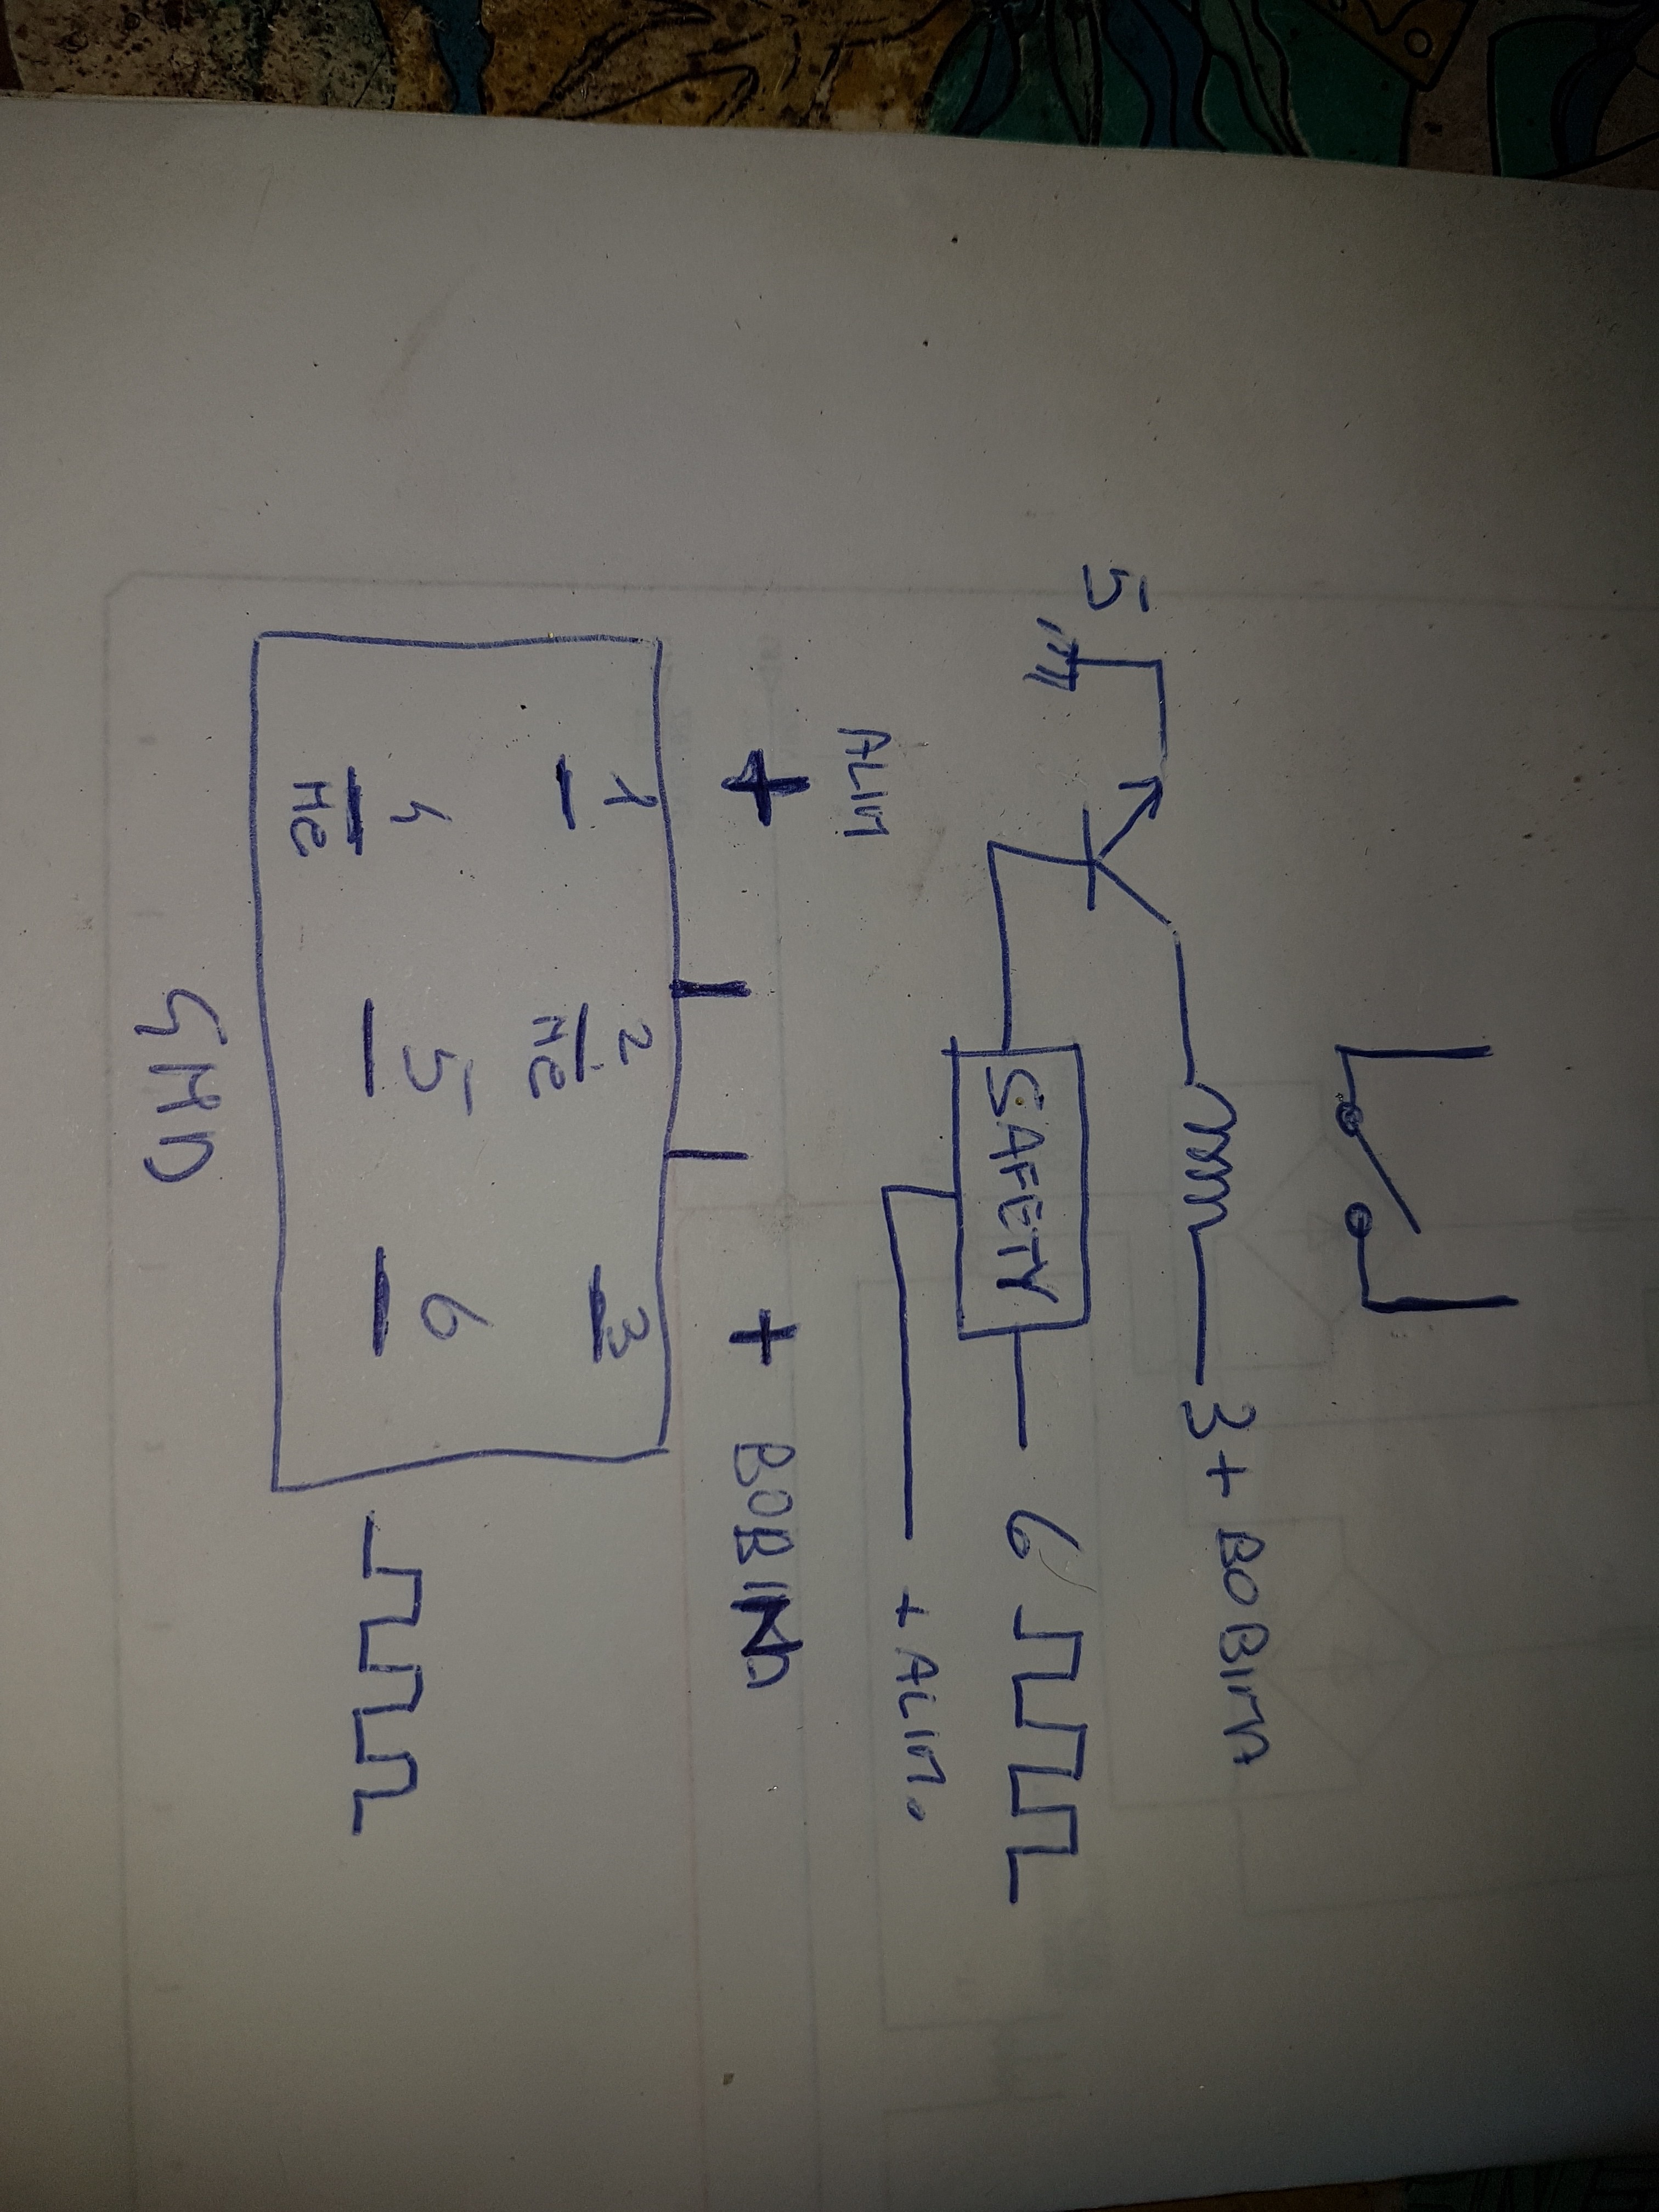 3 + BOBINA
5
SAFETY 6
+ ALIM.
ALIM
+ + BOBINA
1 2 3
NC
4 5 6
NC
GND